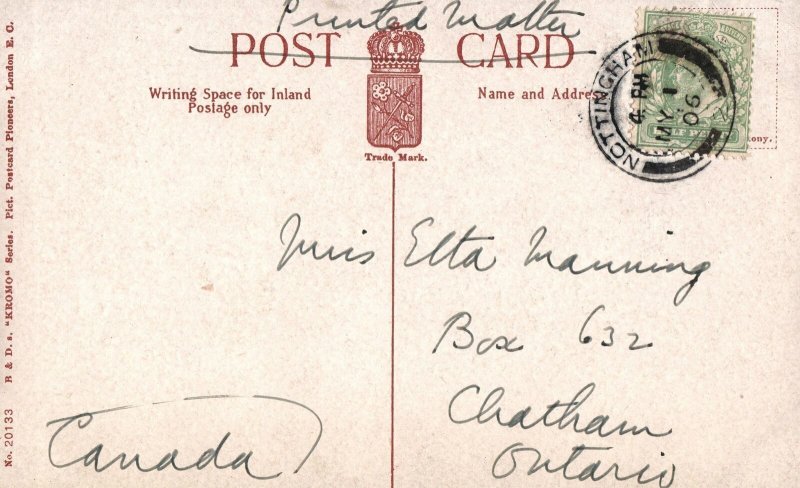 Printed Matter
POST CARD
Writing Space for Inland
Postage only
Name and Address
Trade Mark.
NOTTINGHAM
4 PM
MY 1
06
Miss Elta Manning
Box 632
Chatham
Ontario
Canada
No. 20133 B & D. s. "KROMO" Series. Pict. Postcard Pioneers, London E. C.